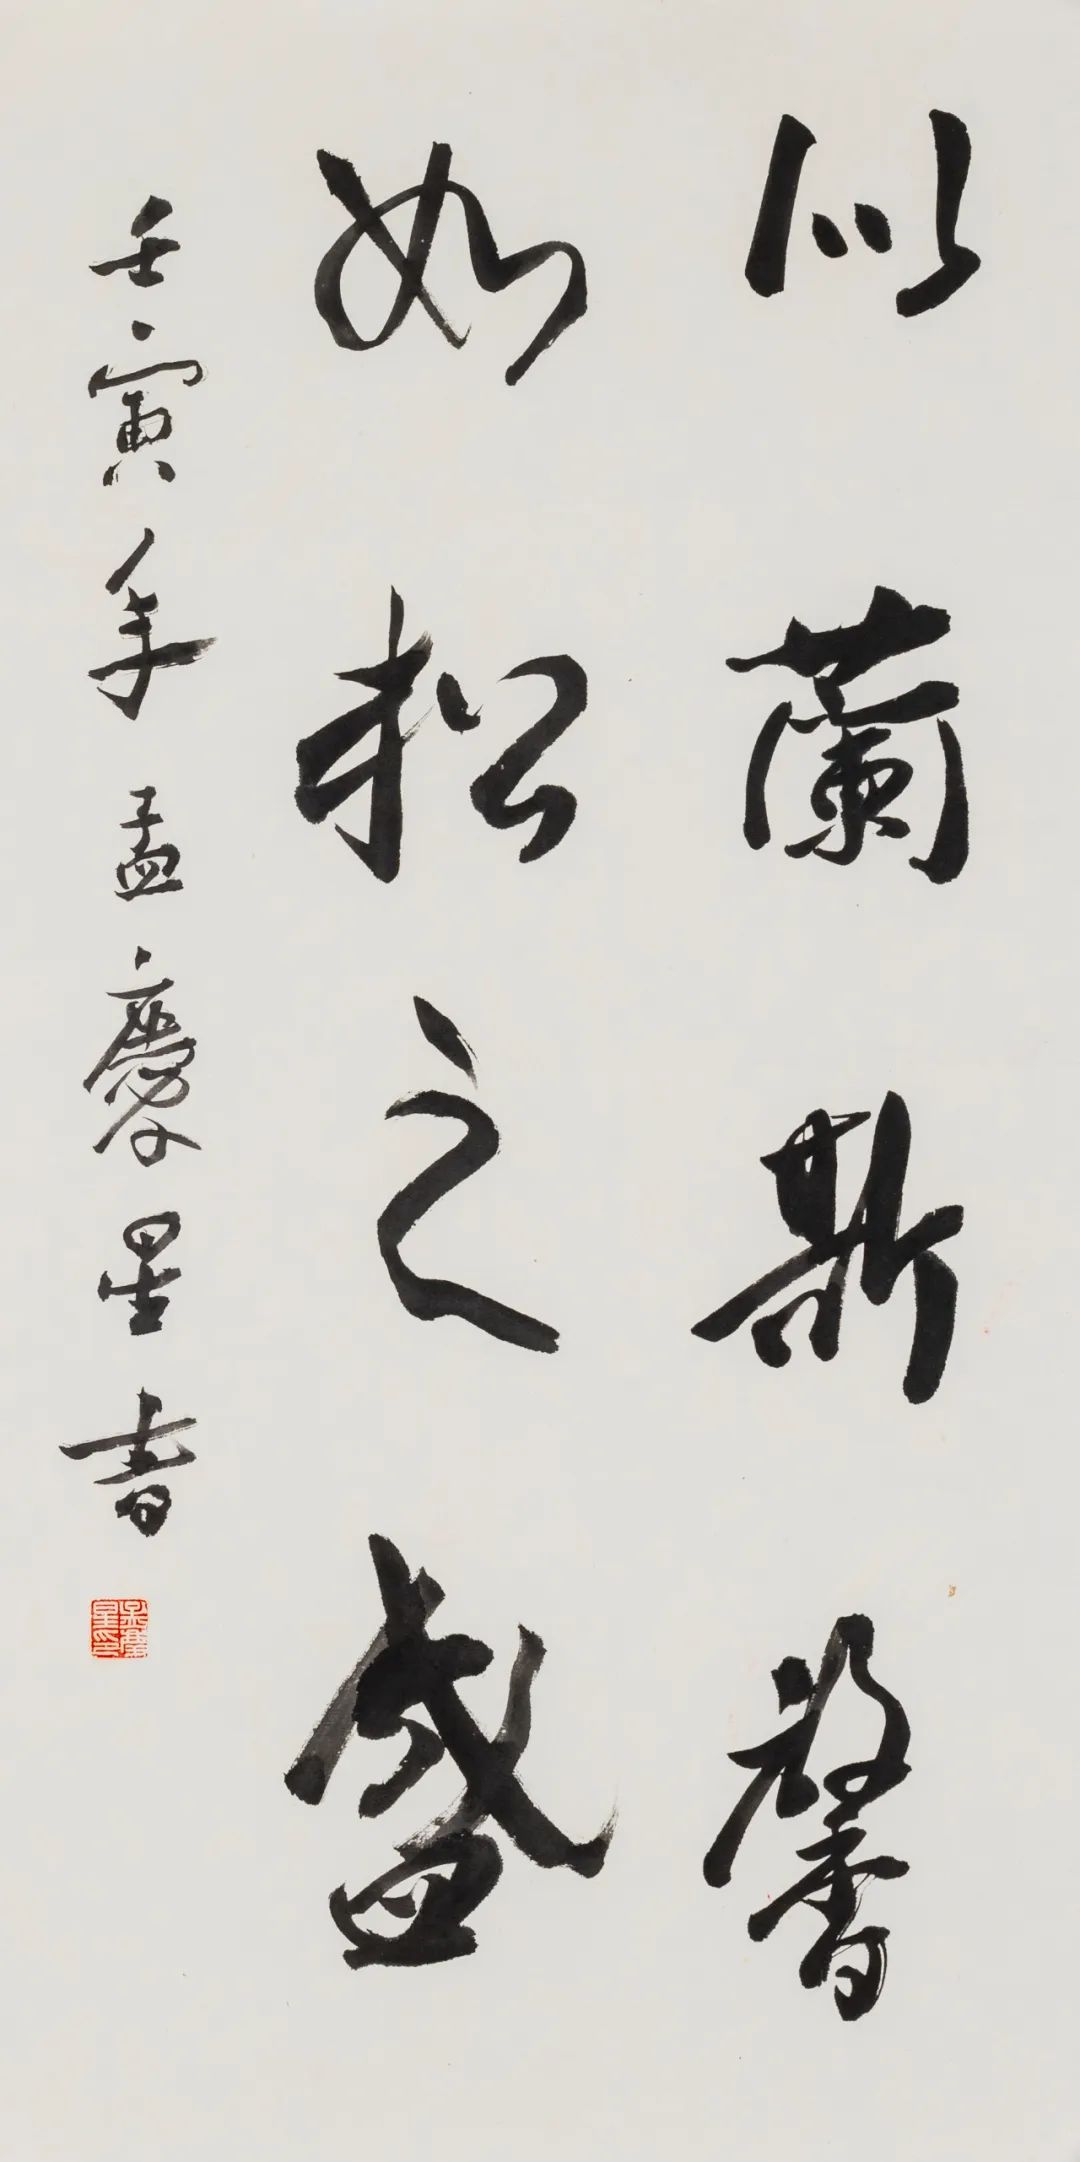 似蘭斯馨
如松之盛
壬寅年孟慶星書